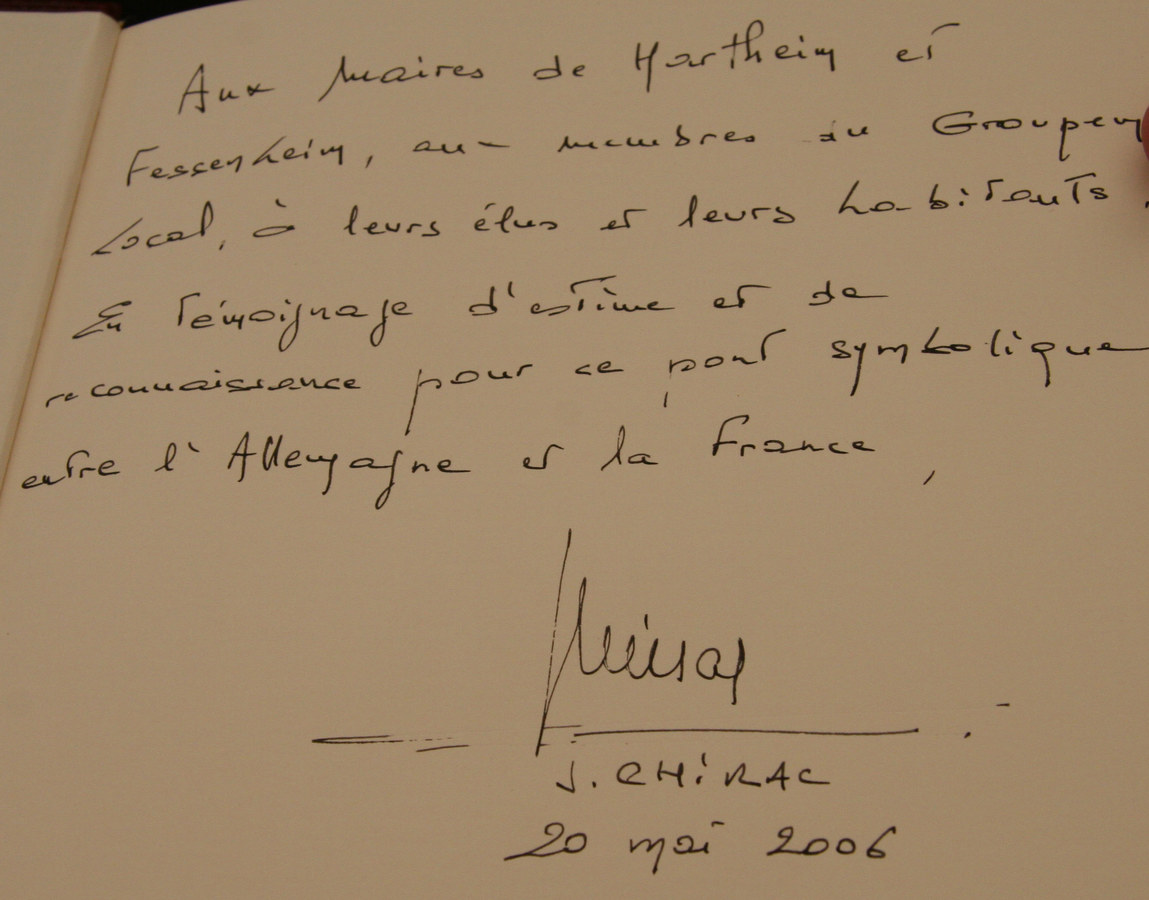 Aux Maires de Hartheim et
Fessenheim, aux membres du Groupement
Local, à leurs élus et leurs habitants.
En témoignage d'estime et de
reconnaissance pour ce pont symbolique
entre l'Allemagne et la France,
J. CHIRAC
20 mai 2006